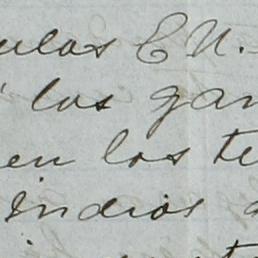 ulas E.U.
los gan
en los te
Indios